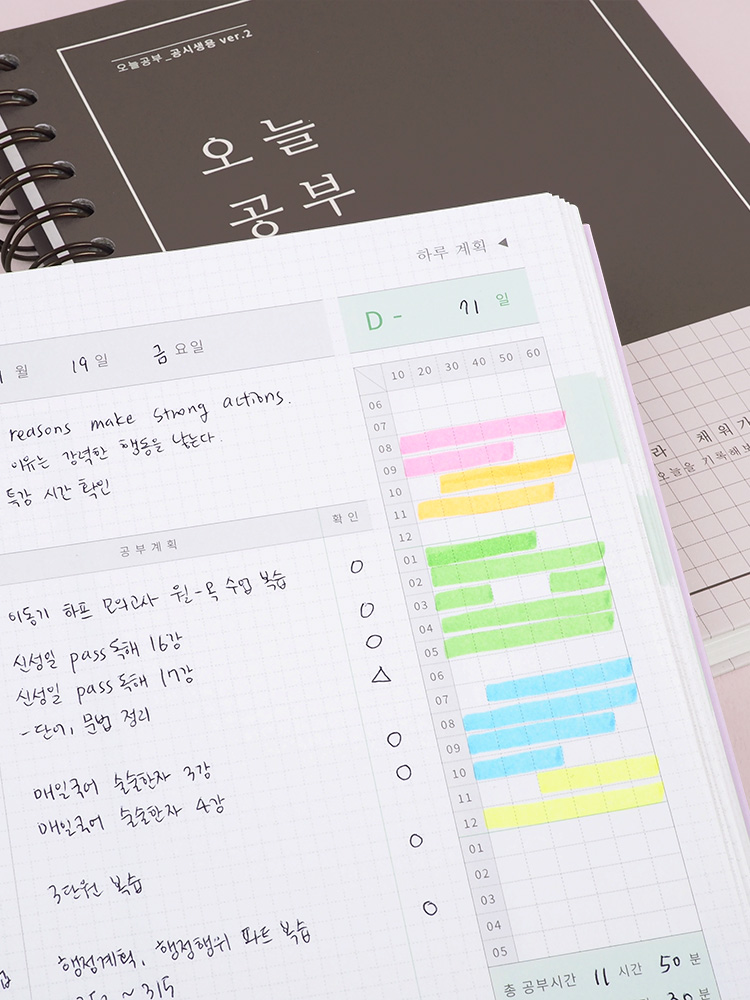 오늘공부_공시생용 ver.2
오늘
공부
하루 계획 ◀
월 19일 금요일
D- 71 일
reasons make strong actions.
이유는 강력한 행동을 낳는다.
특강 시간 확인
공부계획 확인
이동기 하프 모의고사 월-목 수업 복습 ○
신성일 pass 독해 16강 ○
신성일 pass 독해 17강 ○
-단어, 문법 정리 △
매일국어 술술한자 3강 ○
매일국어 술술한자 4강 ○
3단원 복습 ○
행정계획, 행정행위 파트 복습 ○
~ 315
10 20 30 40 50 60
06
07
08
09
10
11
12
01
02
03
04
05
06
07
08
09
10
11
12
01
02
03
04
05
총 공부시간 11 시간 50 분
30 분
라 채워가
오늘을 기록해보